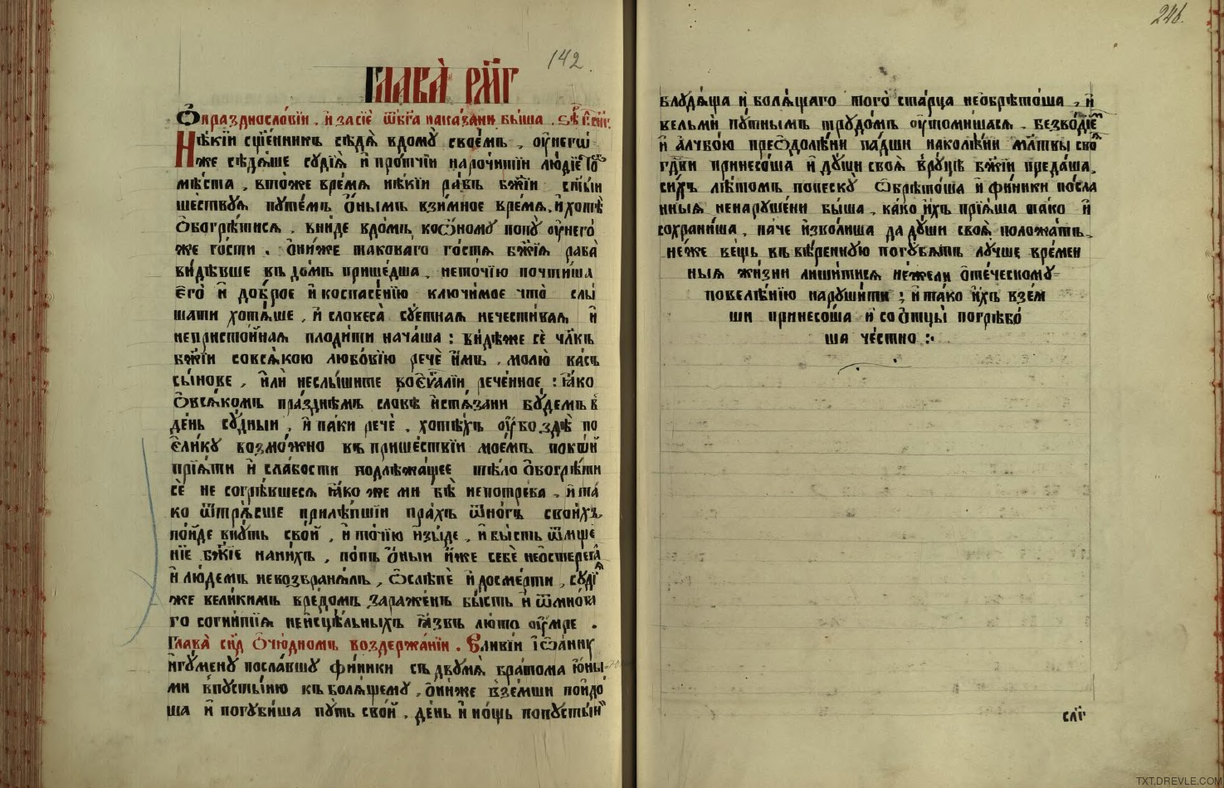 142.
Глава̀ рм҃г
Ѡ празднословїи . и засїе ѿ бг҃а наказани быша .
Нѣкїи сщ҃енникъ сѣдѧ̀ вдомꙋ̀ своемъ , оу҆ негѡ
же сѣдѧше сꙋдїѧ̀ и҆ про́тчїи нарочитїи лю́дїе то
мѣста , втоже вре́мѧ нѣкїи ра́въ бж҃їи
шествꙋѧ пꙋте́мъ ѻ҆нымъ взимное время̀. и҆ хотѣ
ѡ҆богрѣтисѧ . вниде вдомъ ко ѻ҆номꙋ попꙋ̀ оу҆ него́
же гости . ѻ҆ниже таковаго го́стѧ бж҃їѧ раба̀
ви́дѣвше въ домъ прише́дша . неточїю почти́ша
є҆го̀ и҆ до́брое и҆ коспасе́нїю ключи́мое что̀ слы́
шати хотѧ́ше , и҆ словеса̀ сꙋ́етнаѧ нечести́ваѧ и҆
непристо́йнаѧ плоди́ти нача́ша : ви́дѣже сѐ чл҃къ
бж҃їи совсѧ́кою любо́вїю речѐ и҆мъ . молю̀ ва́съ
сы́нове , и҆лѝ неслы́шите во є҆ѵⷢ҇алїи рече́нное : ꙗ҆́ко
ѡ҆ всѧ́комъ пра́зднѣмъ сло́вѣ и҆стѧ́зани бꙋ́демъ в
де́нь сꙋ́дныи , и҆ па́ки речѐ . хотѣ́хъ оу҆́бо
є҆ли́кꙋ возмо́жно въ прише́ствїи мое́мъ поко́й
прїѧ́ти и҆ сла́бости подлежа́щее тѣ́ло ѡ҆богрѣ́ти
сѐ не согрѣ́вшесѧ ꙗ҆́ко же ми бѣ̀ непотре́ва . и҆ та́
ко ѿтрѧ́сше прилѣ́пшїи пра́хъ ѿ но́гъ свои́хъ
по́йде впꙋ́ть сво́й , и҆ то́чїю и҆зы́де , и҆ бы́сть ѿмще́
нїе бж҃їе на ни́хъ , по́пъ ѻ҆́ныи и҆́же себѐ неѡстерега̀
и҆ лю́демъ невозбранѧ́лъ , ѡ҆слѣ́пе и҆ досме́рти , сꙋдїѧ̀
же вели́кимъ вре́домъ зараже́нъ бы́сть и҆ ѿ мно́га
го согни́тїѧ неисцѣ́льныхъ ꙗ҆́звъ лю́то оу҆́мре .
Глава̀ сн҃д Ѡ чю́дномъ воздержа́нїи . Є҆ли́вїи і҆ѡа́ннꙋ
и҆гꙋ́менꙋ посла́вшꙋ фи́ники съ двꙋмѧ̀ бра́тома ю҆́ны
ми впꙋсты́ню къ болѧ́щемꙋ , ѻ҆ни́же взе́мши пойдо́
ша и҆ погꙋби́ша пꙋ́ть сво́й . де́нь и҆ но́щь попꙋсты́ни
246.
блꙋдѧ́ща и҆ болѧ́щаго того̀ ста́рца неѡбрѣто́ша , и҆
вельмѝ пꙋ́тнымъ трꙋдо́мъ оу҆томи́шасѧ . безво́дїе
и҆ а́лчбою преѡдолѣ́ни па́дши на колѣ́ни мл҃твы сво
гд҃ви принесо́ша и҆ дꙋ́ши своѧ̀ врꙋ́цѣ бж҃їи преда́ша.
си́хъ лѣ́томъ попескꙋ̀ ѡ҆брѣто́ша и҆ фи́ники посла
нныѧ ненарꙋ́шени бы́ша , ка́ко и҆́хъ прїѧ́ша та́ко и҆
сохрани́ша , па́че и҆зво́лиша да дꙋ́ши своѧ̀ положа́тъ .
не́же ве́щь въ вѣ́реннꙋю погꙋбѧ́тъ лꙋ́чше времен
ныѧ жи́зни лиши́тисѧ не́жели ѻ҆те́ческомꙋ
повелѣ́нїю нарꙋши́ти ; и҆ та́ко и҆́хъ взем
ши принесо́ша и҆ со ѻ҆тцы̀ погребо́
ша че́стно :·
сл҃г
TXT.DREVLE.COM